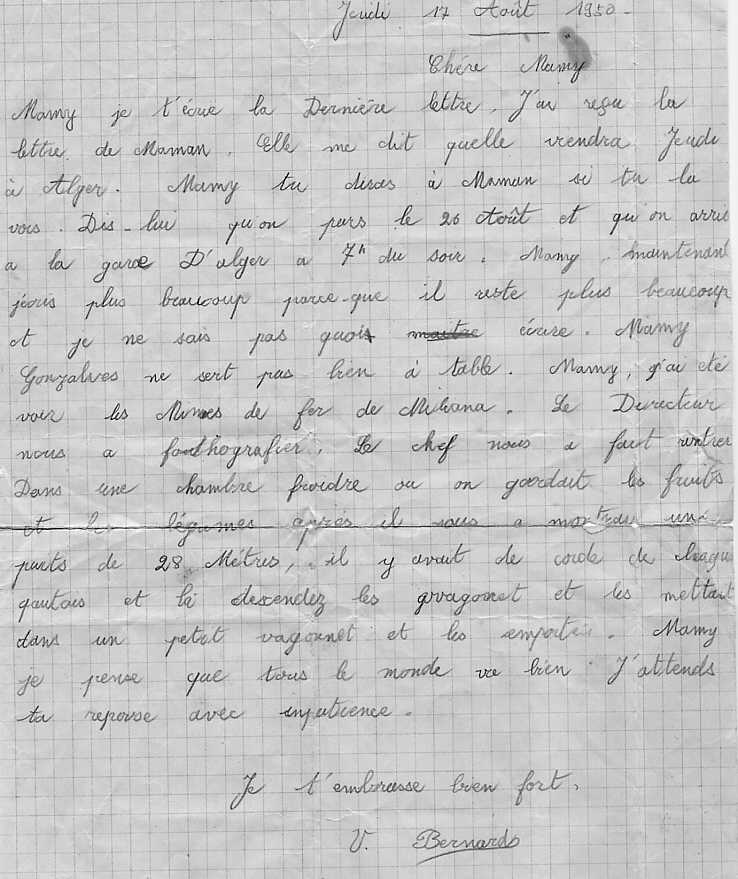 Jeudi 17 Août 1950-
Chére Mamy
Mamy je t'écrie la Dernière lettre. J'ai reçu la
lettre de Maman. Elle me dit quelle viendra Jeudi
à Alger. Mamy tu diras à Maman si tu la
vois. Dis-lui qu'on pars le 26 Août et qu'on arrie
a la gare D'alger a 7h du soir. Mamy, maintenant
jécris plus beaucoup parce-que il reste plus beaucoup
et je ne sais pas quois maitre écrire. Mamy
Gonzalves ne sert pas bien à table. Mamy, j'ai été
voir les Mines de fer de Miliana. Le Directeur
nous a fothografier. Le chef nous a fait rentrer
Dans une chambre froidre ou on gardait les fruits
et les légumes après il nous a montrau un
puits de 28 Mètres, il y avait de corde de chaque
qautais et là descendez les wagonet et les mettait
dans un petit vagonnet et les emportais. Mamy
je pense que tous le monde va bien. J'attends
ta reponse avec impatience.
Je t'embrasse bien fort.
V. Bernard